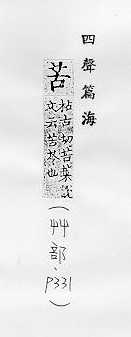 四聲篇海
苦
枯古切苦菜說
文云苦苓也
(艸部、P331)